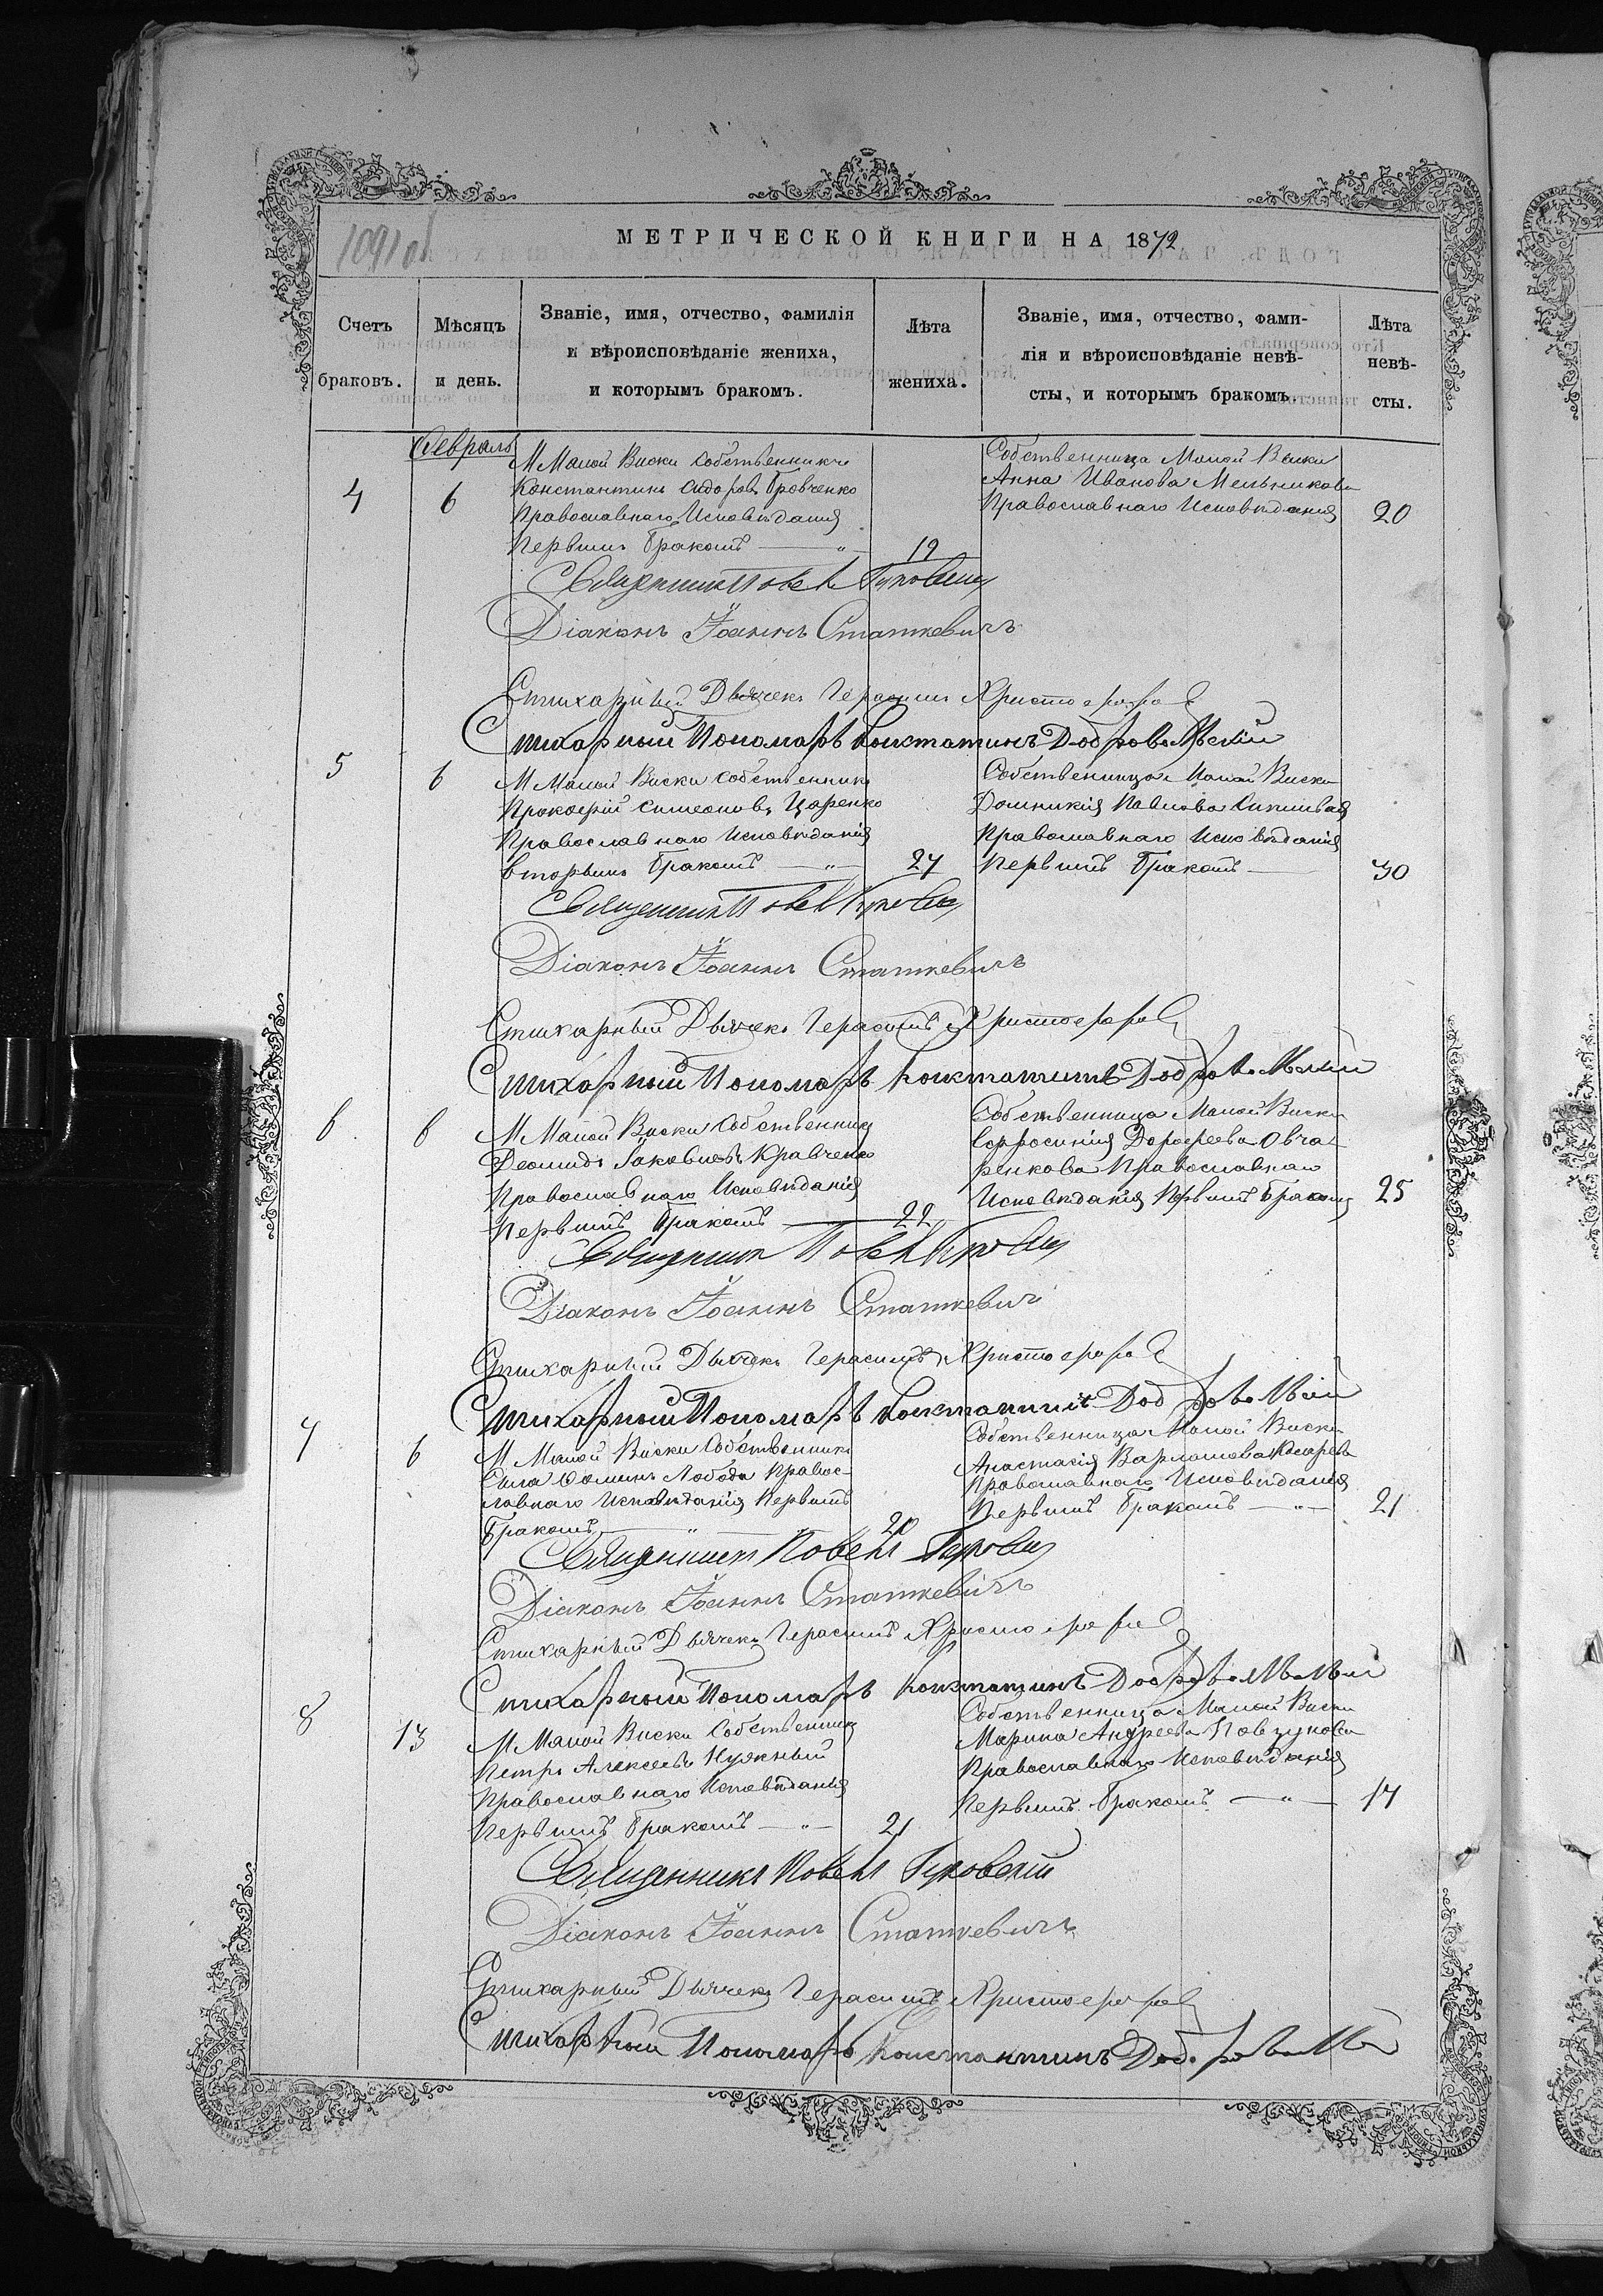 1091 об
МЕТРИЧЕСКОЙ КНИГИ НА 1872
Счетъ браковъ.
Мѣсяцъ и день.
Званіе, имя, отчество, фамилія
и вѣроисповѣданіе жениха,
и которымъ бракомъ.
Лѣта
жениха.
Званіе, имя, отчество, фами-
лія и вѣроисповѣданіе невѣ-
сты, и которымъ бракомъ.
Лѣта
невѣ-
сты.
Февраль
4
6
М Малой Виски собственникъ
Константинъ Сидоровъ Бровченко
Православнаго Исповѣданія
Первымъ бракомъ
19
Собственница Малой Виски
Анна Иванова Мельникова
Православнаго Исповѣданія
20
Священникъ Павелъ
Діаконъ Іоаннъ Статкевичъ
Стихарный Дьячекъ Герасимъ Христофоров
Стихарный Пономарь Константинъ Добровольскій
5
6
М Малой Виски собственникъ
Прокофій Симеоновъ Царенко
Православнаго Исповѣданія
вторымъ бракомъ
27
Собственница Малой Виски
Домникія Павлова
Православнаго Исповѣданія
Первымъ бракомъ
30
Священникъ Павелъ
Діаконъ Іоаннъ Статкевичъ
Стихарный Дьячекъ Герасимъ Христофоров
Стихарный Пономарь Константинъ Добровольскій
6
6
М Малой Виски Собственникъ
Деомидъ Іаковлевъ Кравченко
Православнаго Исповѣданія
Первымъ бракомъ
22
Собственница Малой Виски
Евфросинія Дорофеева Овча-
ренкова Православнаго
Исповѣданія Первымъ бракомъ
25
Священникъ Павелъ
Діаконъ Іоаннъ Статкевичъ
Стихарный Дьячекъ Герасимъ Христофоров
Стихарный Пономарь Константинъ Добровольскій
7
6
М Малой Виски Собственникъ
Сила Фоминъ Лобода Правос-
лавнаго Исповѣданія Первымъ
бракомъ
20
Собственница Малой Виски
Анастасія Варламова
Православнаго Исповѣданія
Первымъ бракомъ
21
Священникъ Павелъ
Діаконъ Іоаннъ Статкевичъ
Стихарный Дьячекъ Герасимъ Христофоров
Стихарный Пономарь Константинъ Добровольскій
8
13
М Малой Виски Собственникъ
Петръ Алексеевъ Нужный
Православнаго Исповѣданія
Первымъ бракомъ
21
Собственница Малой Виски
Марина Андреева
Православнаго Исповѣданія
Первымъ бракомъ
17
Священникъ Павелъ
Діаконъ Іоаннъ Статкевичъ
Стихарный Дьячекъ Герасимъ Христофоров
Стихарный Пономарь Константинъ Добровольскій